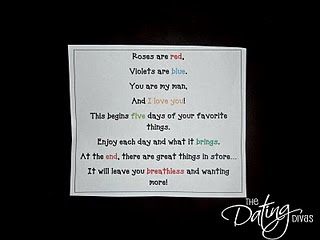 Roses are red,
Violets are blue.
You are my man,
And I love you!
This begins five days of your favorite
things.
Enjoy each day and what it brings.
At the end, there are great things in store...
It will leave you breathless and wanting
more!
THE
Dating
DIVAS